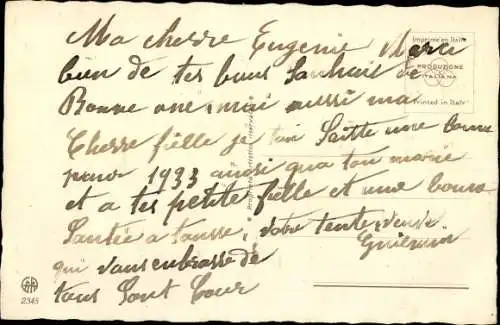 Ma cherre Eugenie Merci
bien de tes bons Sauhais de
Bonne ané mai aussi ma
Cherre fielle je tai Saitte une bonne
pour 1933 ainsi qua ton marie
et a tes petite fielle et une bonne
Santée a tousse. Votre tente
Guiemin
qui vans enbrasse de
tous Sont Cour
Imprimé en Italie
PRODUZIONE
ITALIANA
Printed in Italy
2345